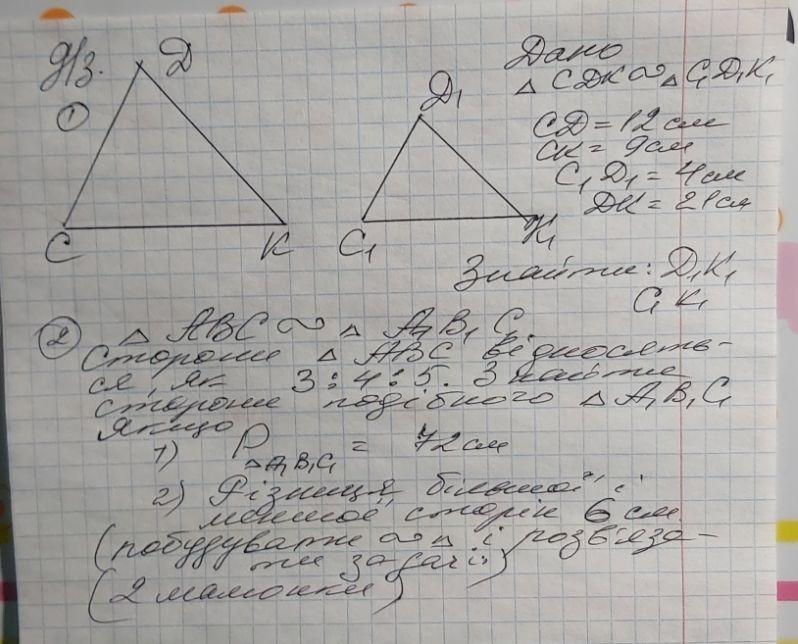 Д/З.
①
Д
С
К
Д₁
С₁
К₁
Дано
△ СДК ∾ △ С₁Д₁К₁
СД = 12 см
СК = 9 см
С₁Д₁ = 4 см
ДК = 21 см
Знайти: Д₁К₁
С₁К₁
② △ АВС ∾ △ А₁В₁С₁
Сторони △ АВС відносять-
ся, як 3:4:5. Знайти
сторони подібного △ А₁В₁С₁
якщо
1) Р△А₁В₁С₁ = 72 см
2) Різниця більшої і
меншої сторін 6 см
(побудувати ∾ △ і розв'яза-
ти задачі)
(2 малюнки)